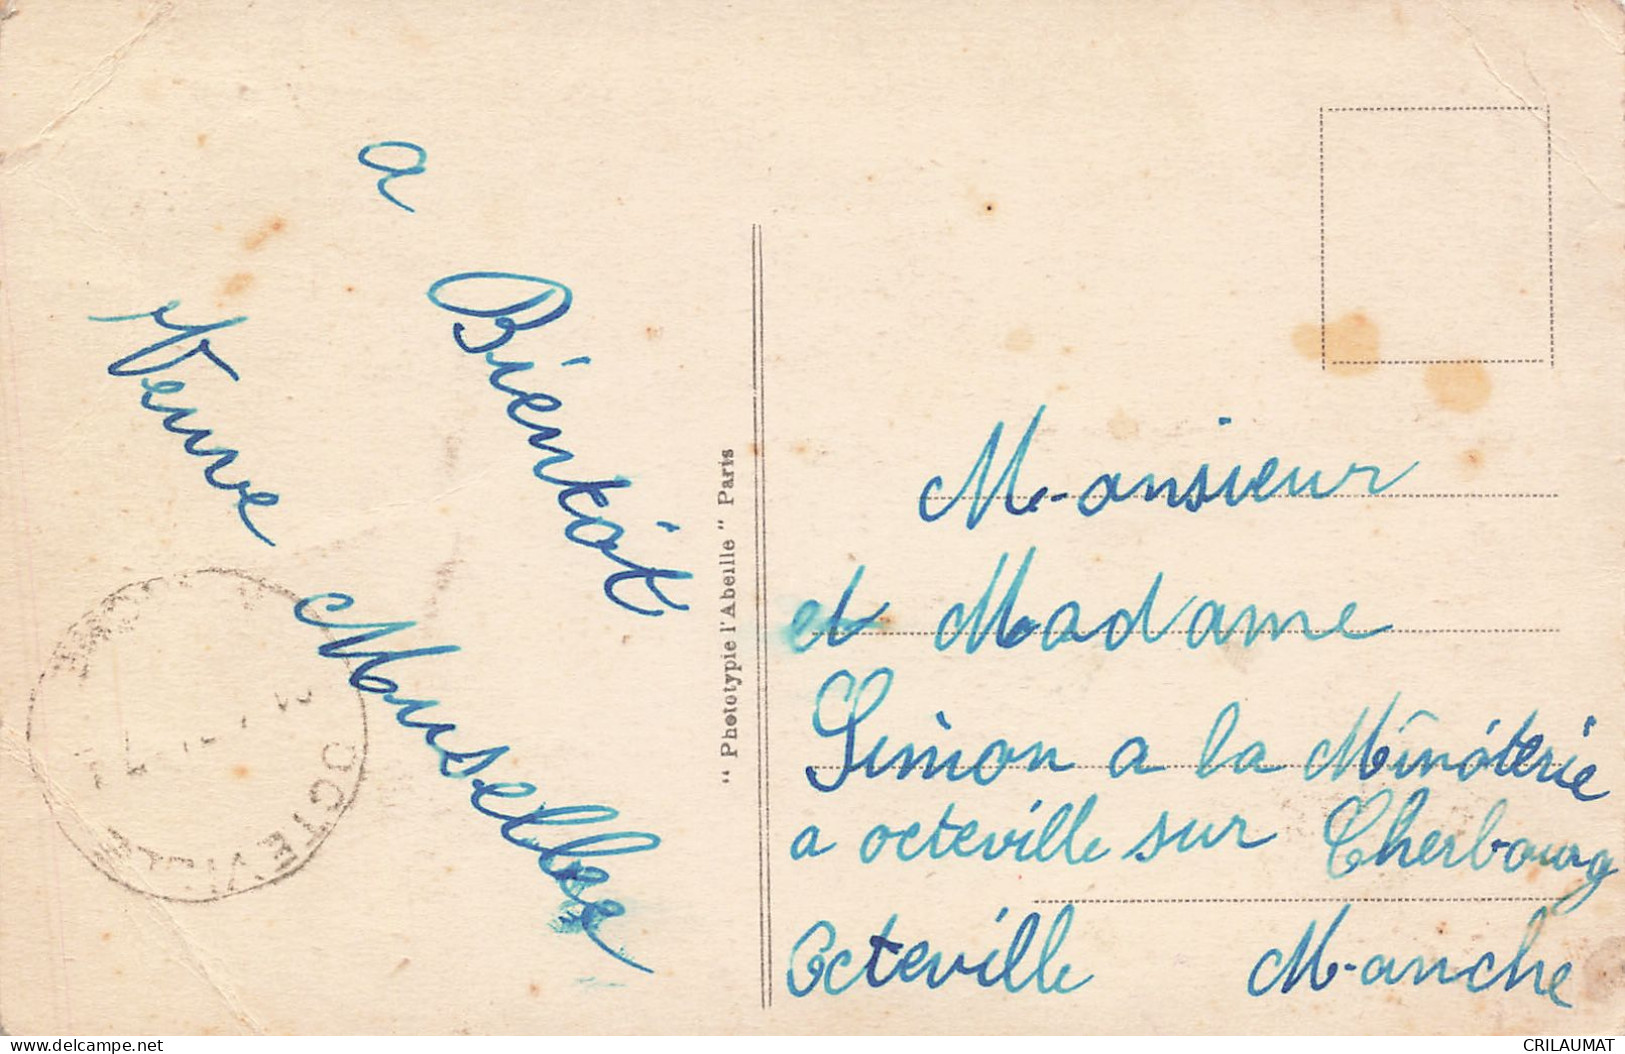 a
Bientôt
Veuve
Muselle
" Phototypie l'Abeille " Paris
Monsieur
et Madame
Simon a la Minôterie
a octeville sur Cherbourg
Octeville Manche
OCTEVILLE
delcampe.net
CRILAUMAT